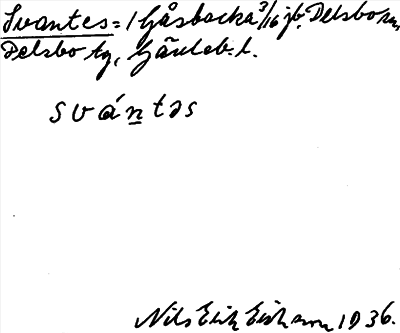 Svantes = 1 Gåsbacka 3/16 jb. Delsbo sn,
Delsbo tg, Gävleb. l.
svántəs
Nils Erik 1936.